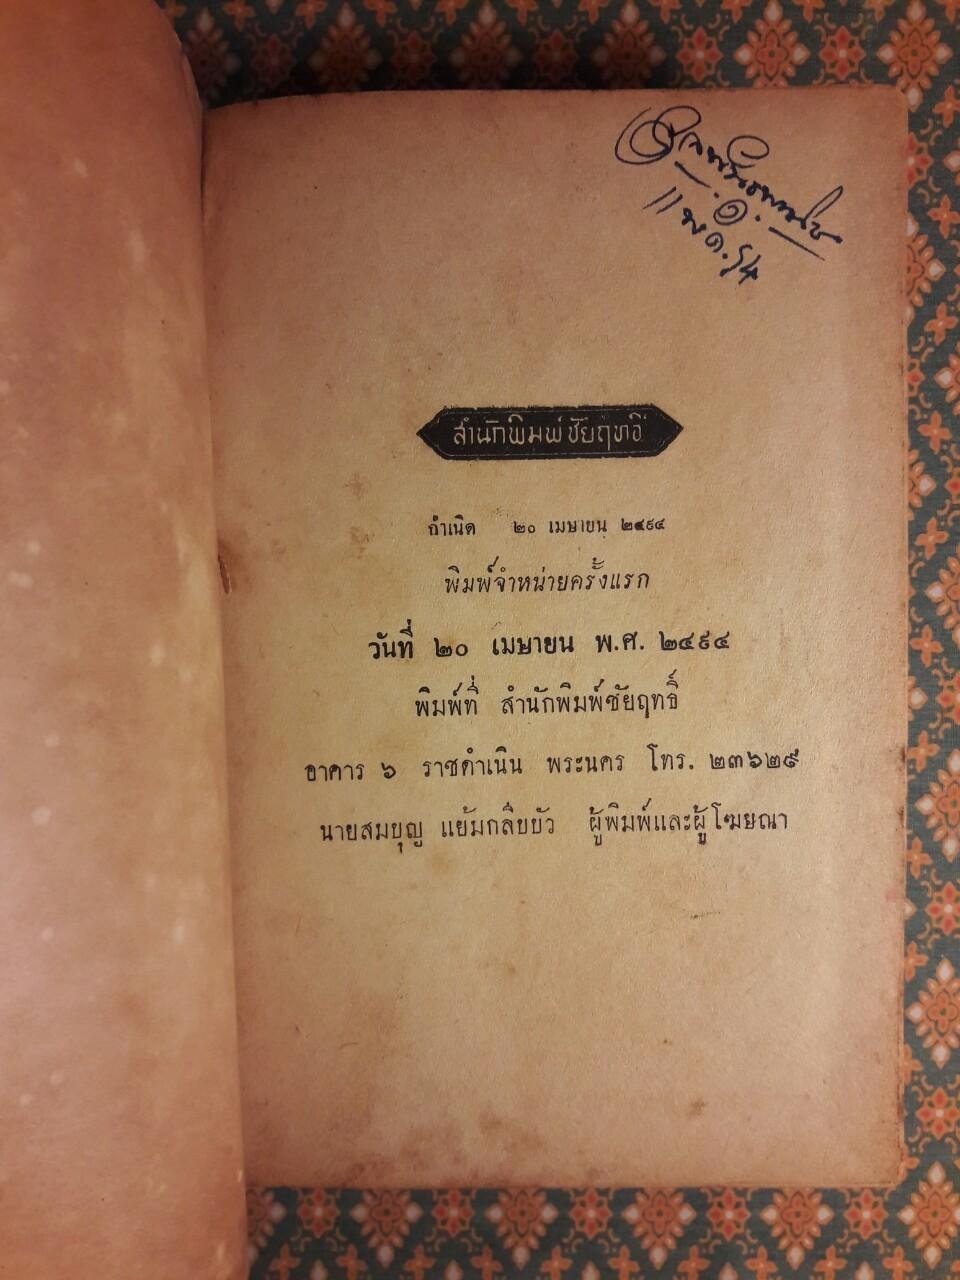 ๑๑ พ.ค. ๙๔
สำนักพิมพ์ชัยฤทธิ์
กำเนิด ๒๐ เมษายน ๒๔๙๔
พิมพ์จำหน่ายครั้งแรก
วันที่ ๒๐ เมษายน พ.ศ. ๒๔๙๔
พิมพ์ที่ สำนักพิมพ์ชัยฤทธิ์
อาคาร ๖ ราชดำเนิน พระนคร โทร. ๒๓๖๒๙
นายสมบุญ แย้มกลีบบัว ผู้พิมพ์และผู้โฆษณา